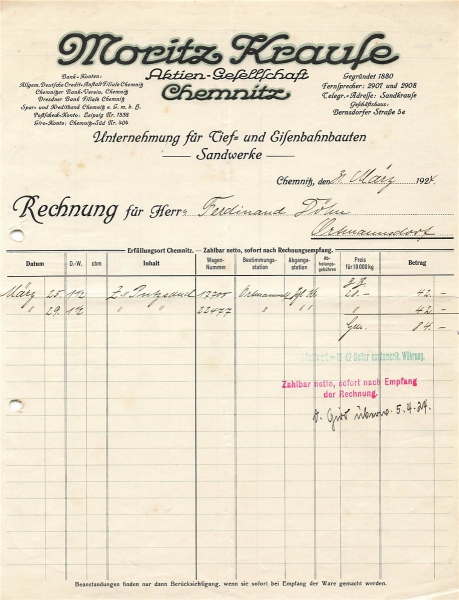 Moritz Krause
Aktien-Gesellschaft
Chemnitz
Bank-Konten:
Allgem. Deutsche Credit-Anstalt Filiale Chemnitz
Chemnitzer Bank-Verein, Chemnitz
Dresdner Bank Filiale Chemnitz
Spar- und Kreditbank Chemnitz e. G. m. b. H.
Postscheck-Konto: Leipzig Nr. 1536
Giro-Konto: Chemnitz-Süd Nr. 404
Gegründet 1880
Fernsprecher: 2907 und 2908
Telegr.-Adresse: Sandkrause
Geschäftshaus:
Bernsdorfer Straße 5e
Unternehmung für Tief- und Eisenbahnbauten
Sandwerke
Chemnitz, den 31. März 1924.
Rechnung für Herrn Ferdinand
Ortmannsdorf
Erfüllungsort Chemnitz. – Zahlbar netto, sofort nach Rechnungsempfang.
Datum D.-W. cbm Inhalt Wagen-Nummer Bestimmungs-station Abgangs-station Ab-holungs-gebühren Preis für 10 000 kg Betrag
März 25. Putzsand 42.–
" 29. " " 22477 " " " 42.–
84.–
Zahlbar netto, sofort nach Empfang
der Rechnung.
5.4.24.
Beanstandungen finden nur dann Berücksichtigung, wenn sie sofort bei Empfang der Ware gemacht werden.